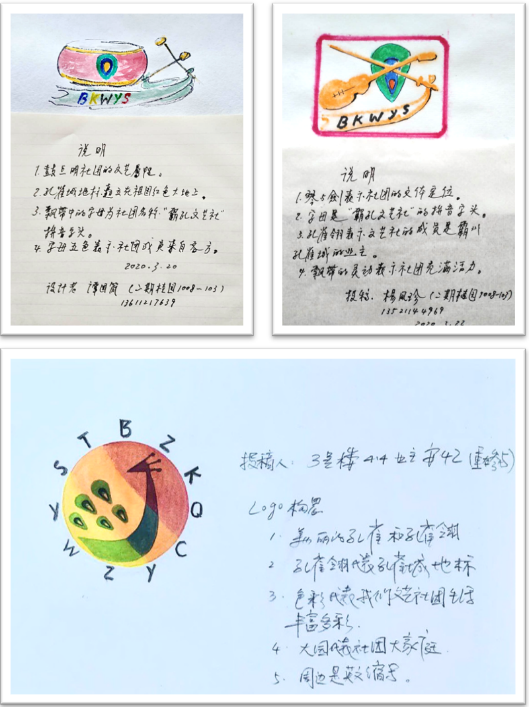 BKWYS
说明
1. 鼓点明社团的文艺属性。
2. 孔雀城地标矗立在祖国红色大地上。
3. 飘带中的字母为社团名称“霸孔文艺社”
拼音字头。
4. 字母五色表示社团成员来自各方。
2020.3.20
设计者 谭国
(二期桂园1008-103)
13611217639
BKWYS
说明
1. 琴与剑表示社团的文体定位。
2. 字母是“霸孔文艺社”的拼音字头。
3. 孔雀翎表示文艺社的成员是霸州
孔雀城的业主。
4. 飘带的灵动表示社团充满活力。
投稿:杨凤珍(二期桂园1008-103)
13521144969
BZKQCYZWYST
投稿人: 3号楼 414 业主
Logo 构思
1. 美丽的孔雀和孔雀翎
2. 孔雀翎代表孔雀城地标
3. 色彩代表我们文艺社团生活
丰富多彩.
4. 大圆代表社团大家庭.
5. 周边是英文缩写。